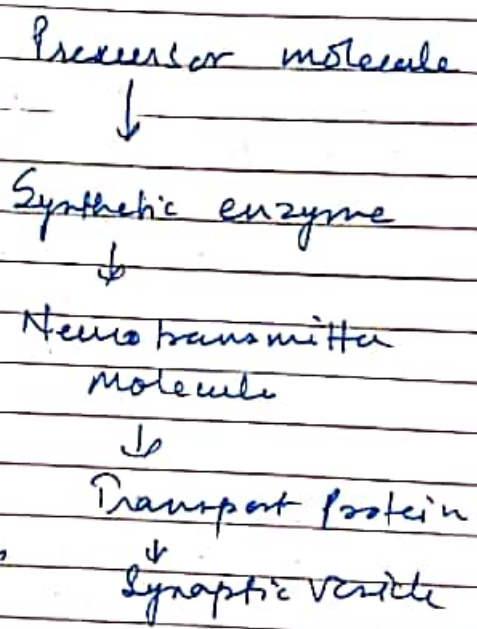 Precursor molecule
↓
Synthetic enzyme
↓
Neurotransmitter
molecule
↓
Transport protein
↓
Synaptic vesicle